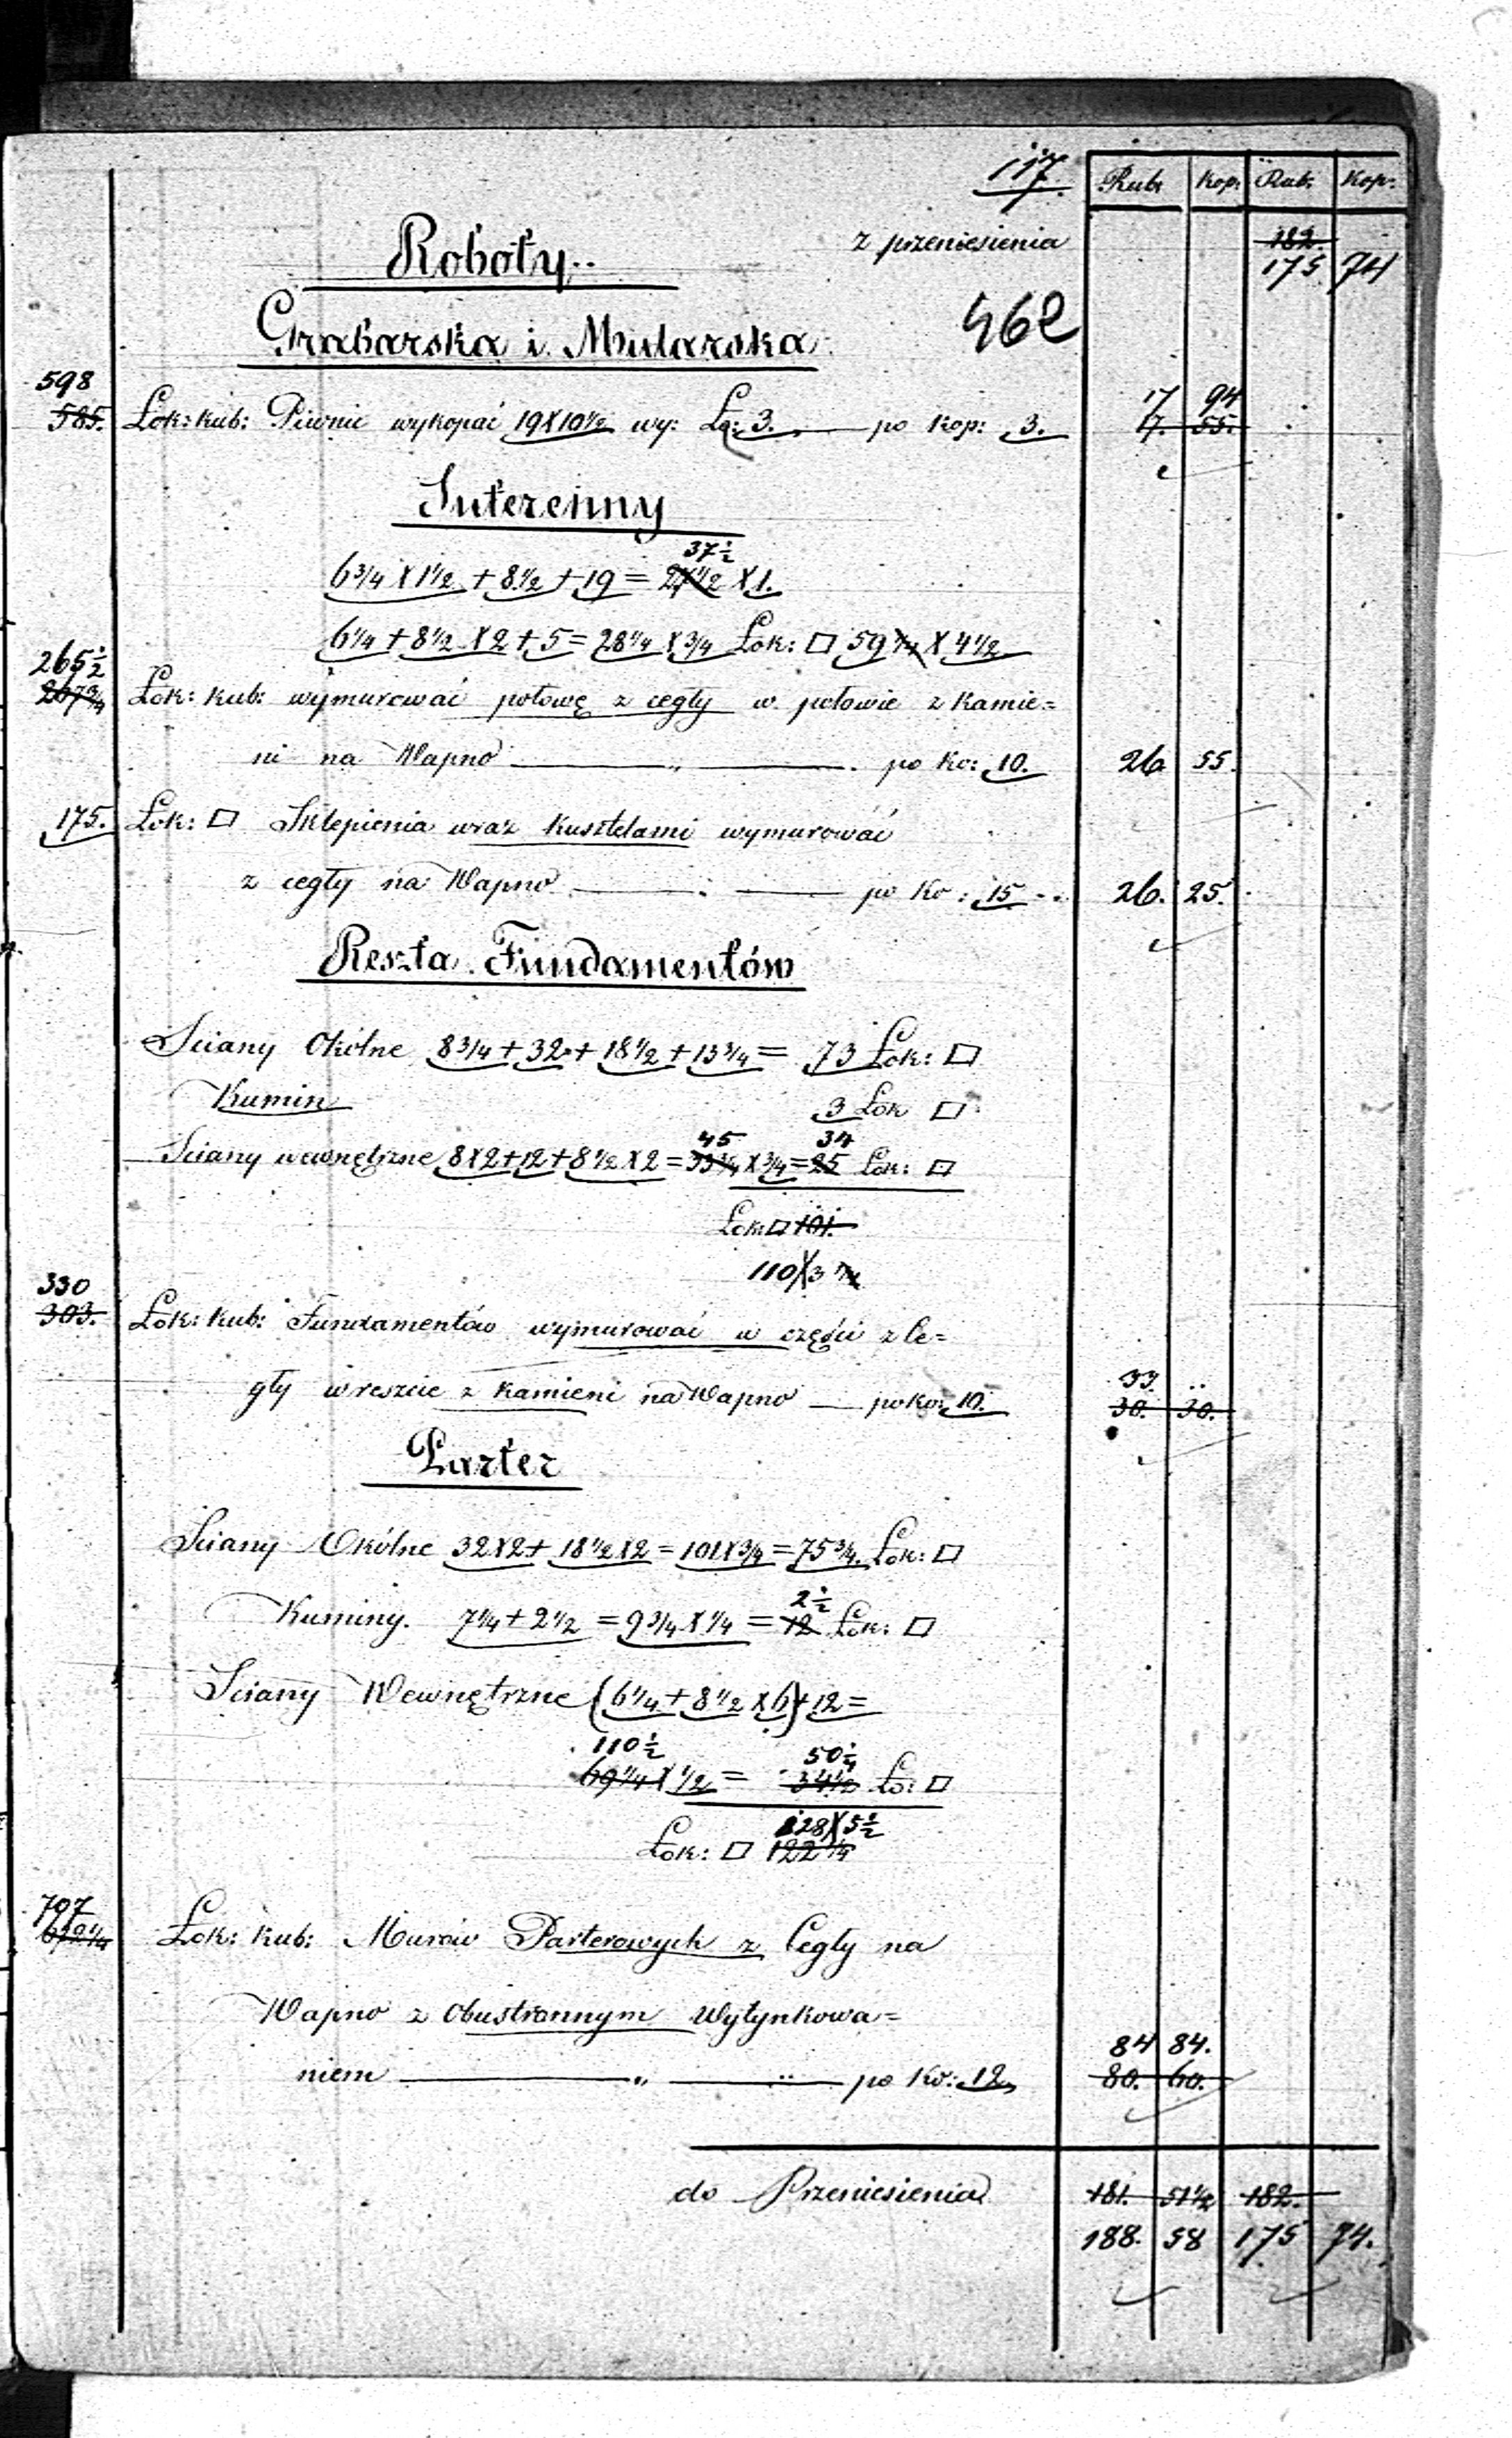 117.
Rub: Kop: Rub: Kop:
z przeniesienia 182.
Roboty 175 74
462
Grabarska i Mularska
598 17 94
585. Lok: kub: Piwnic wykopać 19X10½ wy: Lo: 3. po kop: 3. 17. 55.
Suterenny
37½
6¾ X 1½ + 8½ + 19 = X 1.
6¼ + 8½ X 2 + 5 = 28¼ X ¾ Lok: □ 59 X 4½
265½
267¾ Lok: kub: wymurować połowę z cegły w połowie z kamie=
ni na Wapno „ po ko: 10. 26 55.
175. Lok: □ Sklepienia wraz kusztelami wymurować
z cegły na Wapno po ko: 15 26. 25.
Reszta Fundamentów
Sciany Okólne 8¾ + 32 + 18½ + 13¾ = 73 Lok: □
Kumin 3 Lok □
45 34
Sciany wewnętrzne 8X2+12+8½X2 = 33¼ X ¾ = 25 Lok: □
Lok: □ 101.
110 X 3
330
303. Lok: kub: Fundamentów wymurować w części z Ce=
33. ..
gły w reszcie z kamieni na Wapno po ko: 10. 30. 30.
Parter
Sciany Okólne 32X2+ 18½X2 = 101X¾ = 75¾. Lok: □
2½
Kuminy. 7¼ + 2½ = 9¾ X ¼ = 12 Lok: □
Sciany Wewnętrzne (6¼ + 8½ X 6) + 12 =
110½ 50¼
69¼ X ½ = 34½ Lo: □
128 X 5½
Lok: □ 122¼
707
672¼ Lok: kub: Murów Parterowych z Cegły na
Wapno z obustronnym Wytynkowa=
84 84.
niem „ po ko: 12, 80. 60.
do Przeniesienia 181. 51½ 182.
188. 58 175 74.